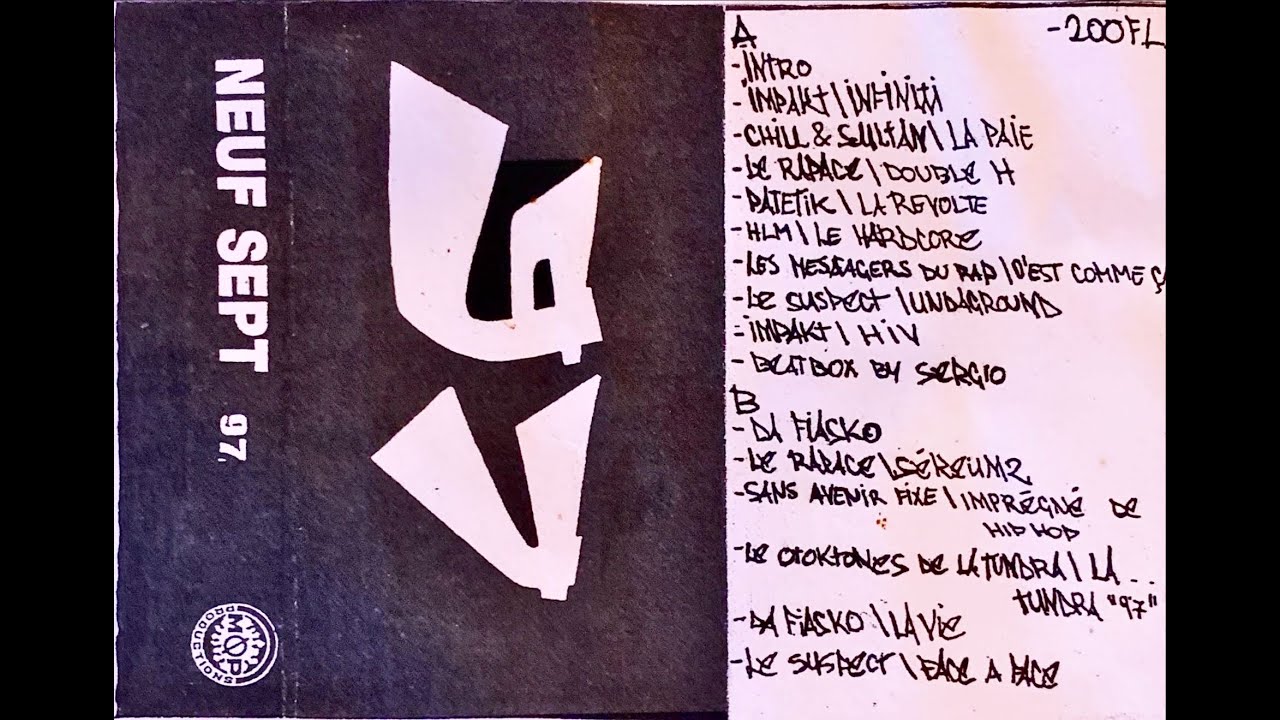 NEUF SEPT 97.
MOP
PRODUCTIONS
-200F.L
A
-INTRO
-IMPAKT \ INFINITI
-CHILL & SULTAN \ LA PAIE
-LE RAPACE \ DOUBLE H
-PATETIK \ LA REVOLTE
-HLM \ LE HARDCORE
-LES MESSAGERS DU RAP \ C'EST COMME Ç
-LE SUSPECT \ UNDAGROUND
-IMPAKT \ HIV
-BEATBOX BY SERGIO
B
-DA FIASKO
-LE RAPACE \ SÉREUM2
-SANS AVENIR FIXE \ IMPRÉGNÉ DE
HIP HOP
-LE OTOKTONES DE LA TUNDRA \ LA ..
TUNDRA "97"
-DA FIASKO \ LA VIE
-LE SUSPECT \ FACE A FACE